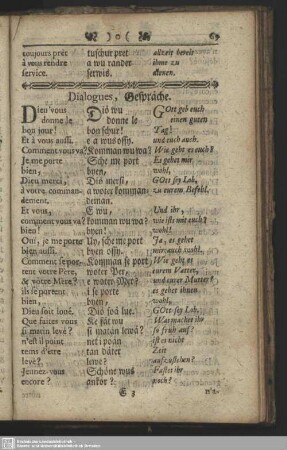 )o( 69
toujours prêt tuschur pret allzeit bereit
à vous rendre a wu rander ihme zu
service. serwis. dienen.
Dialogues, Gespräche.
Dieu vous Diö wu GOtt geb euch
donne le donne le einen guten
bon jour! bon schur! Tag!
Et à vous aussi. e a wus ossy. und euch auch.
Comment vous va? Komman wu wa? Wie geht es euch?
Je me porte Sche me port Es gehet mir
bien, byen, wohl,
Dieu merci, Diö mersi, GOtt sey Lob,
à votre comman- a woter komman- zu eurem Befehl.
dement. deman.
Et vous, E wu, Und ihr,
comment vous va? komman wu wa? wie ists mit euch?
bien! byen! wohl!
Oui, je me porte Uy, sche me port Ja, es gehet
bien aussi. byen ossy. mir auch wohl.
Comment se por- Komman se port Wie geht es
tent vôtre Pére, woter Per, eurem Vatter,
& vôtre Mére? e woter Mer? und eurer Mutter?
ils se portent i se porte es gehet ihnen
bien, byen, wohl,
Dieu soit loué. Diö soä lue. GOtt sey Lob.
Que faites vous Ke fät wu Was machet ihr
si matin levé? si matän lewä? so früh auf?
n'est il point net i poän ist es nicht
tems d'être tan däter Zeit
levé? lewe? aufzustehen?
Jeunez-vous Schöne wus Fastet ihr
encore? ankor? noch?
E 3